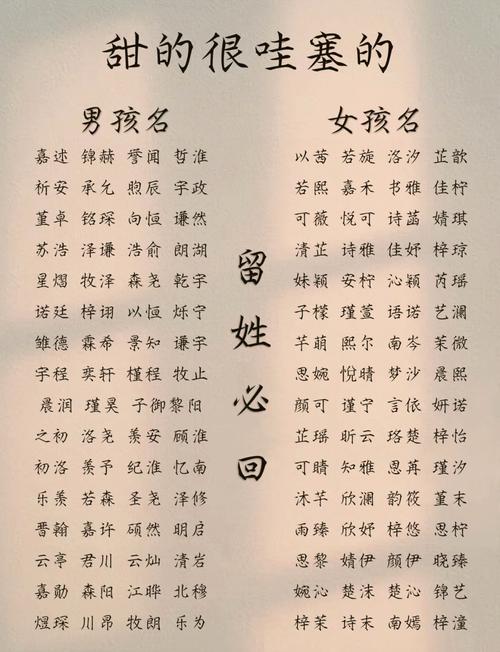 甜的很哇塞的
男孩名
嘉述 锦赫 誉闻 哲淮
祈安 承允 煦辰 宇政
堇卓 铭琛 向恒 谦然
苏浩 泽谦 浩俞 朗湖
星熠 牧泽 森尧 乾宇
诺廷 梓诩 以恒 烁宁
雏德 霖希 景知 谦宇
宇程 奕轩 槿程 牧止
晨润 瑾昊 子御黎阳
之初 洛尧 羡安 顾淮
初洛 羡予 纪淮 忆南
乐羡 若森 圣尧 泽修
晋翰 嘉许 硕然 明启
云亭 君川 云灿 清岩
嘉勋 森阳 江晔 北穆
煜琛 川昂 牧朗 乐为
留姓必回
女孩名
以茜 若旋 洛汐 芷歆
若熙 嘉禾 书雅 佳柠
可薇 悦可 诗菡 婧琪
清芷 诗雅 佳妤 梓琼
姝颖 安柠 沁颖 芮瑶
子檬 瑾萱 语诺 艺澜
芊萌 熙尔 南岑 茉微
思婉 悦晴 梦沙 晨熙
颜可 瑾宁 言依 妍诺
芷瑶 昕云 珞楚 梓怡
可晴 知雅 思苒 瑾汐
沐芊 欣澜 韵筱 堇末
雨臻 欣妤 梓悠 思柠
思黎 婧伊 颜伊 晓臻
婉沁 楚沫 楚沁 锦艺
梓茉 诗末 南嫣 梓潼